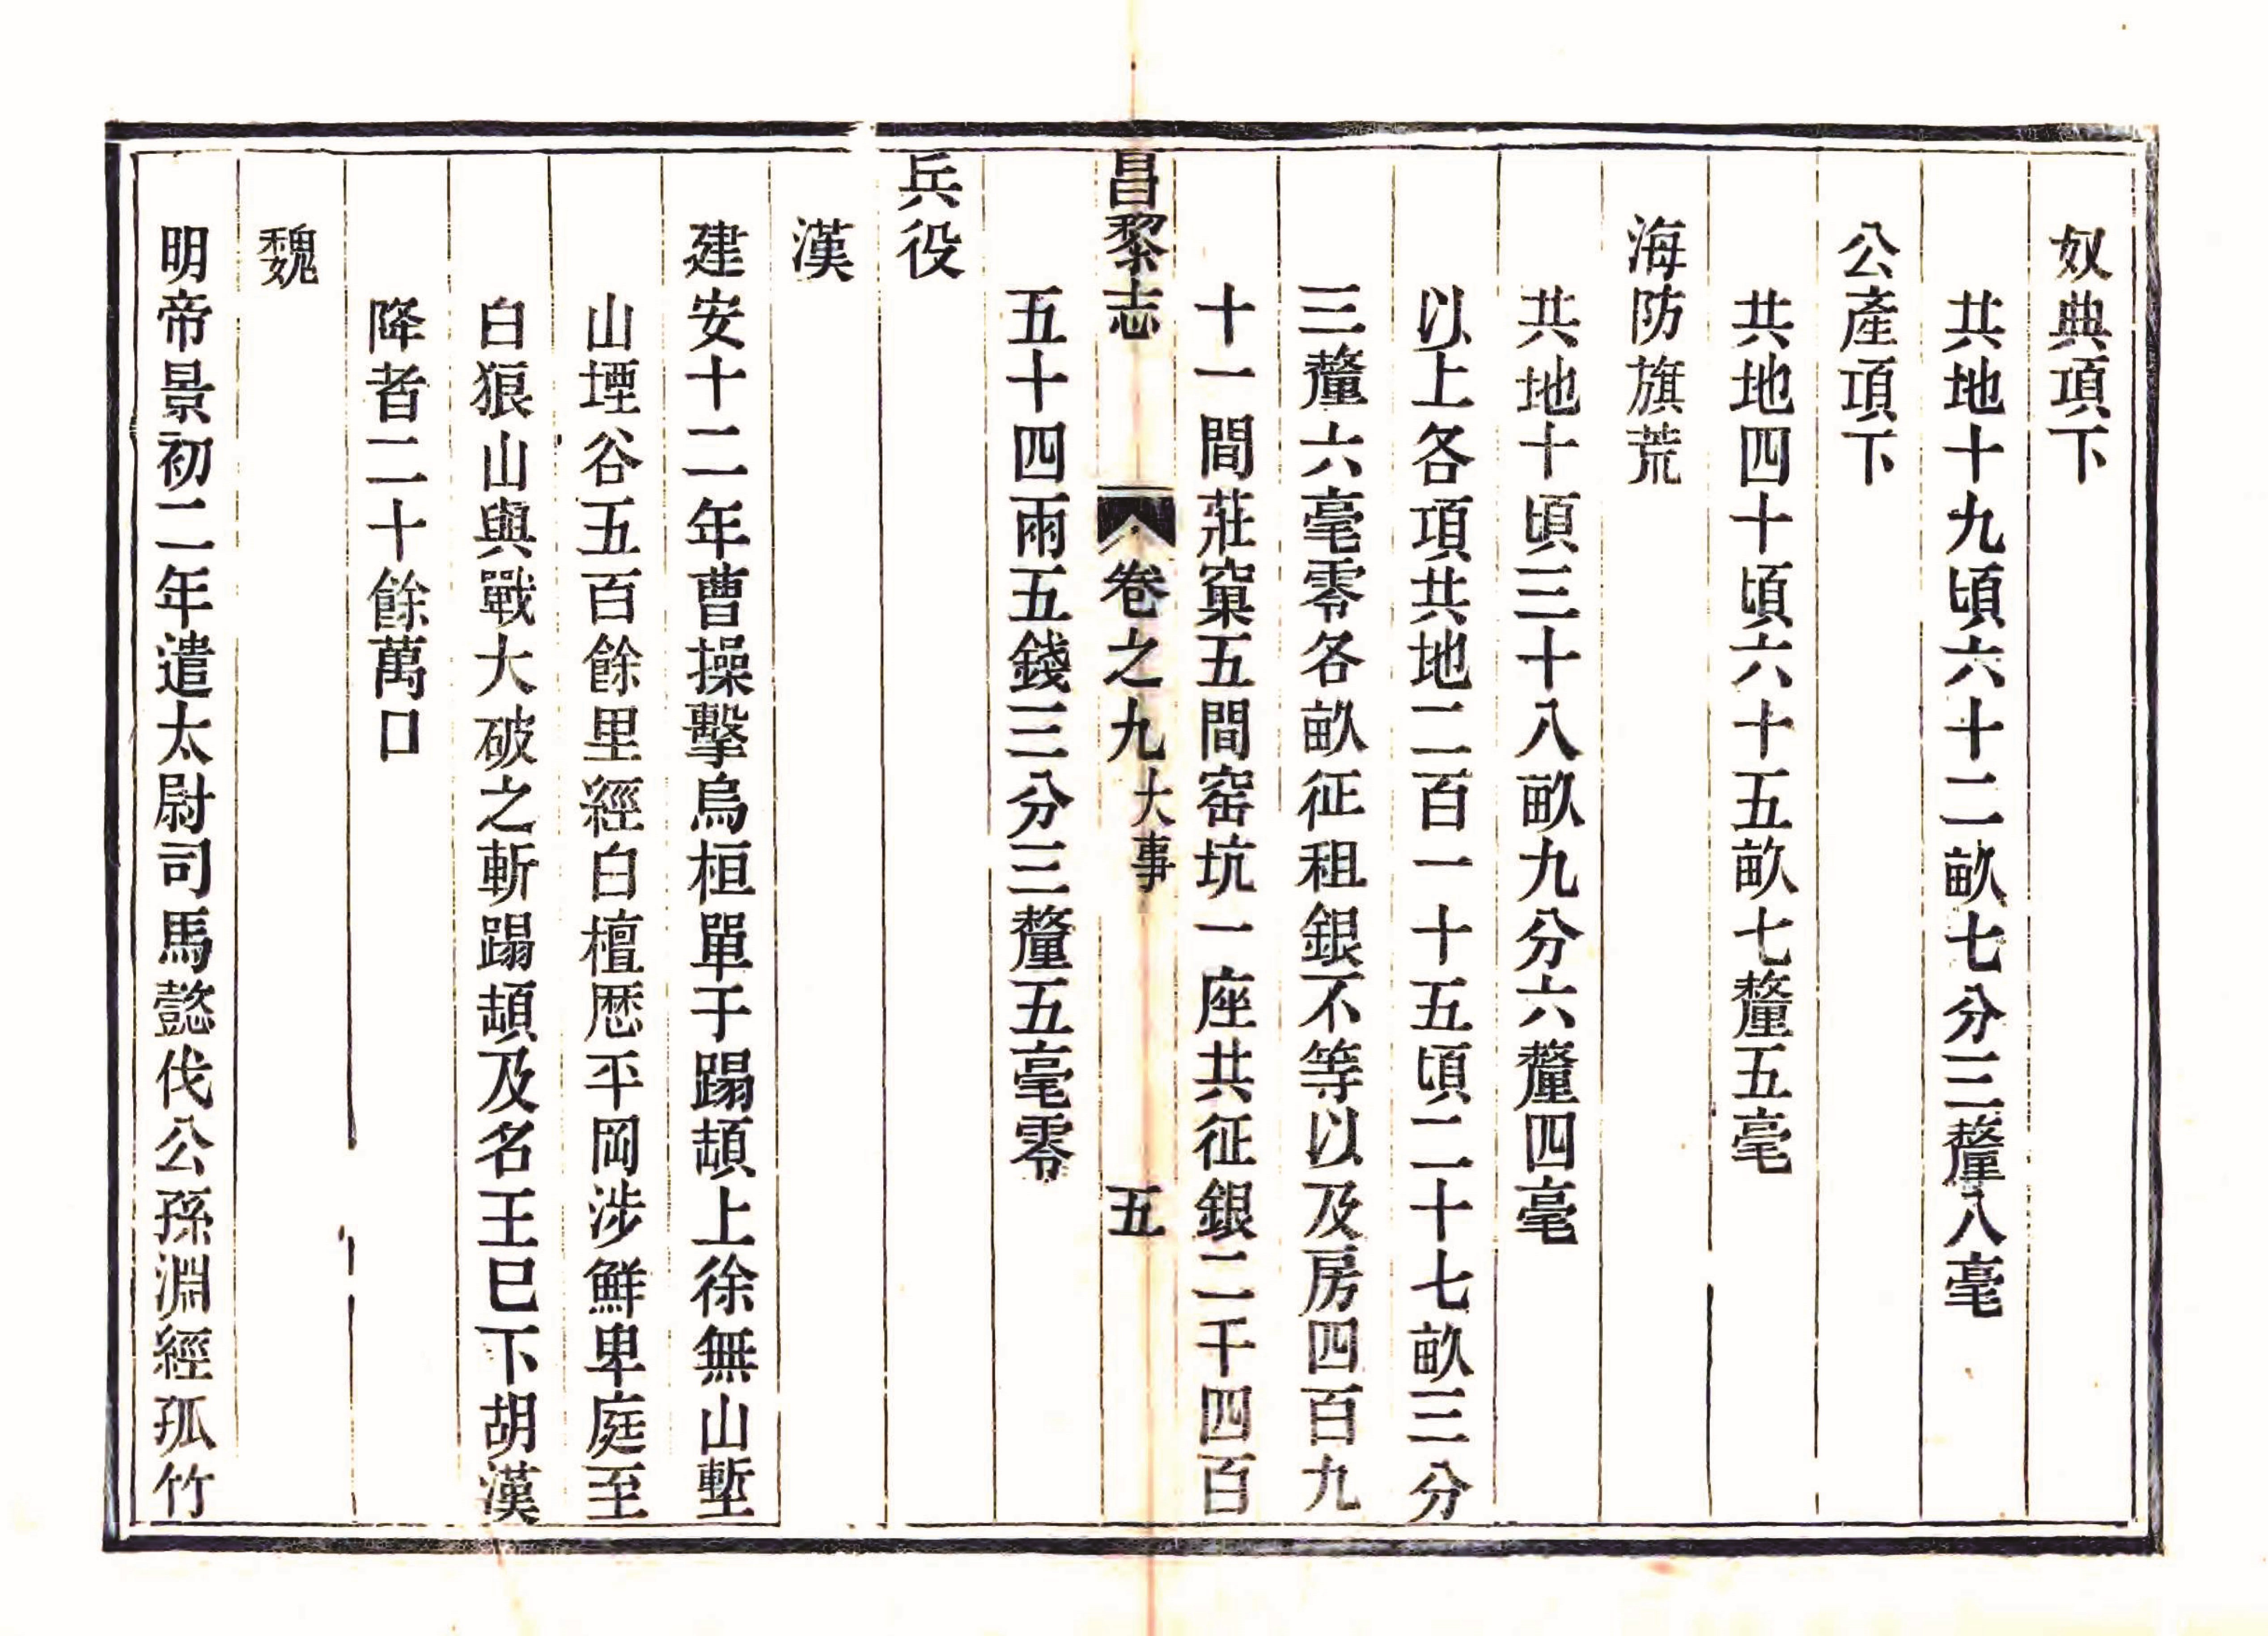 奴典項下
共地十九頃六十二畝七分三釐八毫
公產項下
共地四十頃六十五畝七釐五毫
海防旗荒
共地十頃三十八畝九分六釐四毫
以上各項共地二百一十五頃二十七畝三分
三釐六毫零各畝征租銀不等以及房四百九
十一間莊窠五間窑坑一座共征銀二千四百
昌黎志 卷之九 大事 五
五十四兩五錢三分三釐五毫零
兵役
漢
建安十二年曹操擊烏桓單于蹋頓上徐無山塹
山堙谷五百餘里經白檀歴平岡涉鮮卑庭至
白狼山與戰大破之斬蹋頓及名王巳下胡漢
降者二十餘萬口
魏
明帝景初二年遣太尉司馬懿伐公孫淵經孤竹